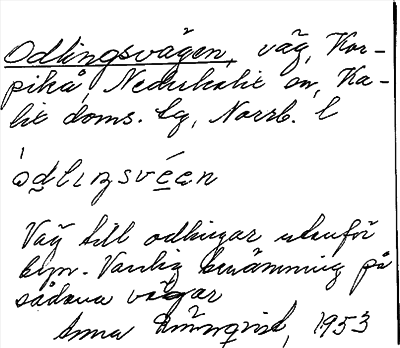 Odlingsvägen, väg, Kor-
pikå, Nederkalix sn, Ka-
lix doms. lg, Norrb. l
òdlıŋsvéen
Väg till odlingar utanför
byn. Vanlig benämning på
sådana vägar
Anna Grönqvist, 1953